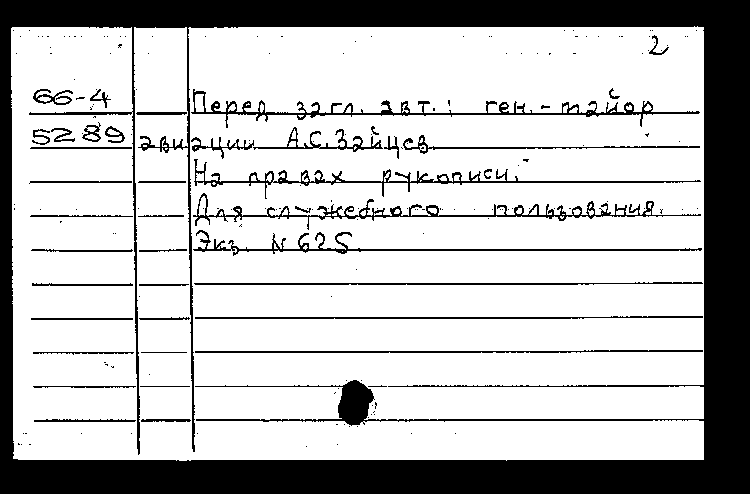 2
66-4 Перед загл. авт.: ген.-майор
5289 авиации А.С.Зайцев.
На правах рукописи.
Для служебного пользования.
Экз. N 625.